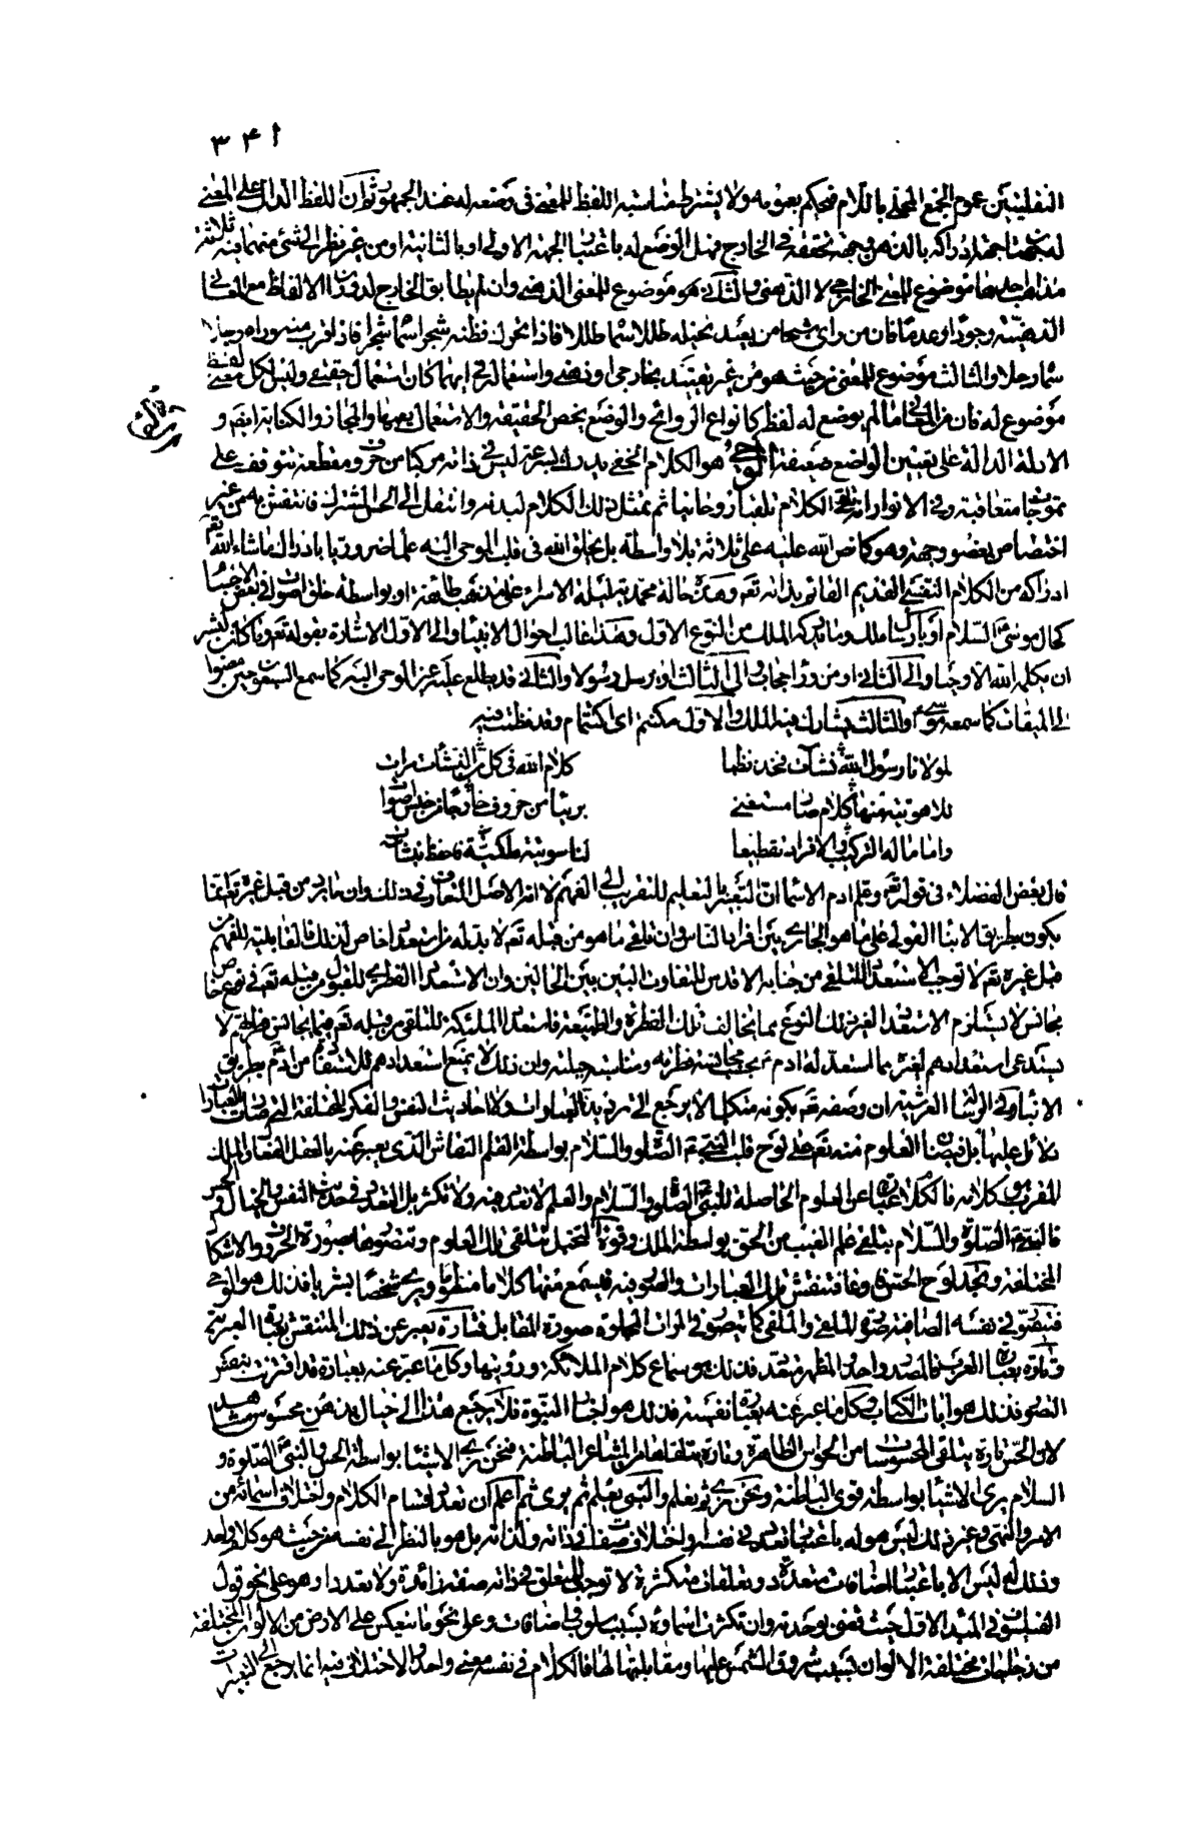 ٣٤١
النقليين عموم الجمع المحلى باللام فيحكم بعمومه ولا يشترط مناسبة اللفظ للمعنى فى وضعه له عند الجمهور ثم ان اللفظ الدال على المعنى
له جهتان جهة ادراكه بالذهن وجهة تحققه فى الخارج فهل الوضع له باعتبار الجهة الاولى او بالثانية او من غير نظر الى شئ منهما فيه ثلاثة
مذاهب احدها موضوع للمعنى الخارجى لا الذهنى والثانى هو موضوع للمعنى الذهنى وان لم يطابق الخارج لدوران الالفاظ مع المعانى
الذهنية وجودا وعدما فان من راى شبحا من بعيد تخيله طللا سماه طللا فاذا تحرك فظنه شجرا سماه شجرا فاذا قرب منه وراه رجلا
سماه رجلا والثالث موضوع للمعنى من حيث هو من غير تقييد بخارجى او ذهنى واستعماله فى ايهما كان استعمال حقيقى وليس لكل معنى لفظ
موضوع له فان من المعانى ما لم يوضع له لفظ كانواع الروائح والوضع يخص الحقيقة والاستعمال يعمها والمجاز والكناية ايضم و
الادلة الدالة على تعيين الواضع ضعيفة الوحى هو الكلام الخفى يدرك بسرعة ليس فى ذاته مركبا من حروف مقطعة تتوقف على
تموجات متعاقبة وفى الانوار انه تلقى الكلام تلقيا روحانيا ثم تمثل ذلك الكلام لبدنه وانتقل الى الحس المشترك فانتقش به من غير
اختصاص بعضو وجهة وهو كما نص الله عليه على ثلاثة بلا واسطة بل يخلق الله فى قلب الموحى اليه علما ضروريا بادراك ما شاء الله تعم
ادراكه من الكلام النفسى القديم القائم بذاته تعم وهذه حالة محمدية ليلة الاسراء على مذهب طائفة او بواسطة خلق اصوات فى بعض الاجسام
كحال موسى عم السلام او بارسال ملك وما يدركه الملك من النوع الاول وهذا غالب احوال الانبياء والى الاول الاشارة بقوله تعم وما كان لبشر
ان يكلمه الله الا وحيا والى الثانى او من وراء حجاب والى الثالث او يرسل رسولا والثانى قد يطلع عليه غير الموحى اليه كما سمع السبعون حين مضوا
الى الميقات كما سمعه موسى عم والثالث يشارك فيه الملك والاول مكتم اى اكتتام وقد نظمت فيه
لمولانا رسول الله نشآت فخذ نظما كلام الله فى كل النشآت مرات
للاهوتية منها كلام صار مستغنى بريئا من حروف خارجا من خبس اصوات
واما ما له التركيب والافراد تقطيعا لناسوتية ملكية فاحفظ بنشآت
قال بعض الفضلاء فى قوله تعم وعلم ادم الاسماء ان التعبير بالتعليم للتقريب الى الفهم لانه الاصل المتعارف فى ذلك وان ما يرد من قبل غيره تعم انما
يكون بطريق الانباء القولى على ما هو الجارى بين افراد الناس وان تلقى ما هو من قبله تعم لا بد له من استعداد خاص لذلك فالقابلية للفهم من
قبل غيره تعم لا توجب الاستعداد للتلقى من جنابه الاقدس للتفاوت البين بين الحالين وان الاستعداد الفطرى للقبول من قبله تعم فى نوع خاص
بجانس لا يستلزم الاستعداد لغير ذلك النوع مما يخالف تلك الفطرة والطبيعة فاستعداد الملئكة للتلقى من قبله تعم فيما يجانس فطرتهم لا
يستدعى استعدادهم لغيره مما استعد له ادم عم بحسب مجانسة فطرته ومناسبة جبلته وان ذلك لا يمنع استعدادهم للاستفادة من ادم بطريق
الانباء وفى الرسالة العرشية ان وصفه تعم بكونه متكلما لا يرجع الى ترديد العبارات ولا احاديث النفس والفكر المختلفة التى صارت العبارات
دلائل عليها بل فيضان العلوم منه تعم على لوح قلب النبى عم الصلوة والسلام بواسطة القلم النقاش الذى يعبر عنه بالعقل الفعال والملك
المقرب هو كلامه فالكلام عبارة عن العلوم الحاصلة للنبى عم الصلوة والسلام والعلم لا تعدد فيه ولا تكثر بل التعدد فى حديث النفس والخيال والحس
فالنبى عم الصلوة والسلام يتلقى علم الغيب من الحق بواسطة الملك وقوة التخيل تتلقى تلك العلوم وتتصورها بصورة الحروف والاشكال
المختلفة وتجد لوح الحس فارغا فتنتقش تلك العبارات والصور فيه فيسمع منها كلاما منظوما ويرى شخصا بشريا فذلك هو الوحى
فيتصور فى نفسه الصافية صورة الملقى والملقى كما يتصور فى المراة المجلوة صورة المقابل فتارة يعبر عن ذلك المنتقش بعبارة العبرية
وتارة بعبارة العرب فالمصدر واحد والمظهر متعدد فذلك هو سماع كلام الملائكة ورؤيتها وكل ما عبر عنه بعبارة قد اقترنت بنفس
التصور فذلك هو ايات الكتاب وكل ما عبر عنه بعبارة نفسية فذلك هو اخبار النبوة فلا يرجع هذا الى خيال يذهن محسوس مشاهد
لان الحس تارة يتلقى المحسوسات من الحواس الظاهرة وتارة يتلقاها من المشاعر الباطنة فنحن نرى الاشياء بواسطة الحس والنبى عم الصلوة و
السلام يرى الاشياء بواسطة قوى الباطنة ونحن نرى ثم نعلم والنبى يعلم ثم يرى ثم اعلم ان تعدد اقسام الكلام واختلاف اسمائه من
الامر والنهى وغير ذلك ليس هو له باعتبار تعدد فى نفسه واختلاف صفات فى ذاته ولذاته بل هو بالنظر الى نفسه من حيث هو كلام واحد
وذلك له ليس الا باعتبار اضافات متعددة وتعلقات متكثرة لا توجب للمتعلق فى ذاته صفة زائدة ولا تعددا وهو على نحو قول
الفيلسوف فى المبدا الاول حيث قضى بوحدته وان تكثرت اسماؤه بسبب سلوب واضافات وعلى نحو ما ينعكس على الارض من الالوان المختلفة
من زجاجات مختلفة الالوان بسبب شروق الشمس عليها ومقابلتها لها فالكلام فى نفسه معنى واحد والاختلاف فيه انما يرجع الى التعبيرات